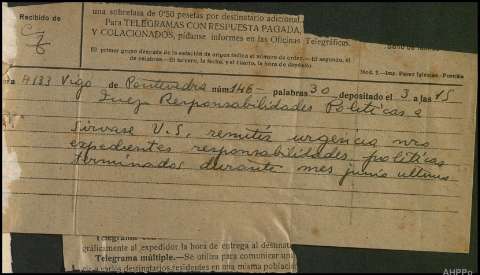 una sobretasa de 0'50 pesetas por destinatario adicional.
Para TELEGRAMAS CON RESPUESTA PAGADA,
Y COLACIONADOS, pídanse informes en las Oficinas Telegráficas.
Recibido de
El primer grupo después de la estación de origen indica el número de orden.—El segundo, el
de palabras.—El tercero, la fecha, y el cuarto, la hora de depósito.
Mod. 2.—Imp. Pérez Iglesias.-Portillo
A133 Vigo de Pontevedra núm 146- palabras 30, depositado el 3 a las 15
Juez Responsabilidades Politicas a
Sirvase V.S. remitir urgencia nro
expedientes responsabilidades politicas
terminados durante mes junio ultimo
Telegrama
gráficamente al expedidor la hora de entrega al destinata
Telegrama múltiple.—Se utiliza para comunicar un
a varios destinatarios residentes en una misma población
AHPPo